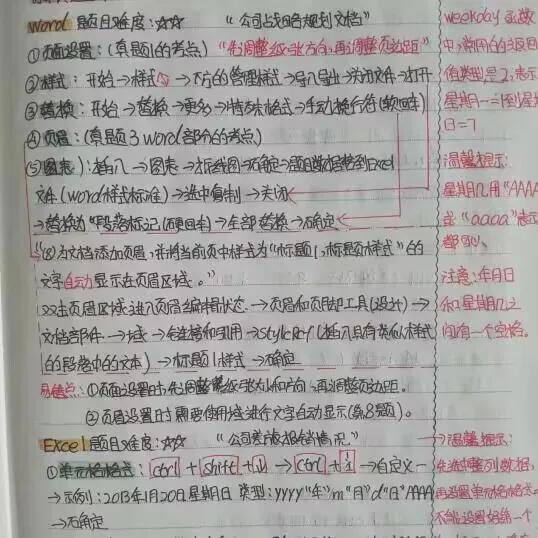 word 题目难度:☆☆ "公司战略规划文档"
①页面设置:(真题1的考点) "先调整纸张方向,再调整页边距"
②样式:开始→样式→下方的管理样式→导入导出→关闭文件→打开
③替换:开始→替换→更多→特殊格式→手动换行符(软回车)
④页眉:(真题3 word部分的考点)
⑤图表:插入→图表→折线图→确定→题目数据带到Excel
文件(word样式标准)→选中复制→关闭
→替换为"段落标记(硬回车)→全部替换→确定
"⑧为文档添加页眉,并将当前页中样式为"标题1,标题样式"的
文字自动显示在页眉区域。"
双击页眉区域进入页眉编辑状态→页眉和页脚工具(设计)→
文档部件→域→链接和引用→StyleRef(插入具有类似样式
的段落中的文本)→标题1样式→确定
易错点:①页面设置时,先调整纸张大小和方向,再调整页边距。
②页眉设置时需要使用域进行文字自动显示(第8题)。
Excel题目难度:☆☆ "公司差旅报销情况"
①单元格格式:ctrl+shift+↓→ctrl+1→自定义—
→示例:2013年1月20日星期日 类型:yyyy"年"m"月"d"日"AAAA
→确定
weekday函数
中,常用的返回
值类型是2,表示
星期一到星期
日=7
温馨提示:
星期几用"AAAA"
或"aaaa"表示
都可以
注意:年月日
和星期几之
间有一个空格。
→温馨提示:
先选中整列数据,
再设置单元格格式
不能设置好第一个